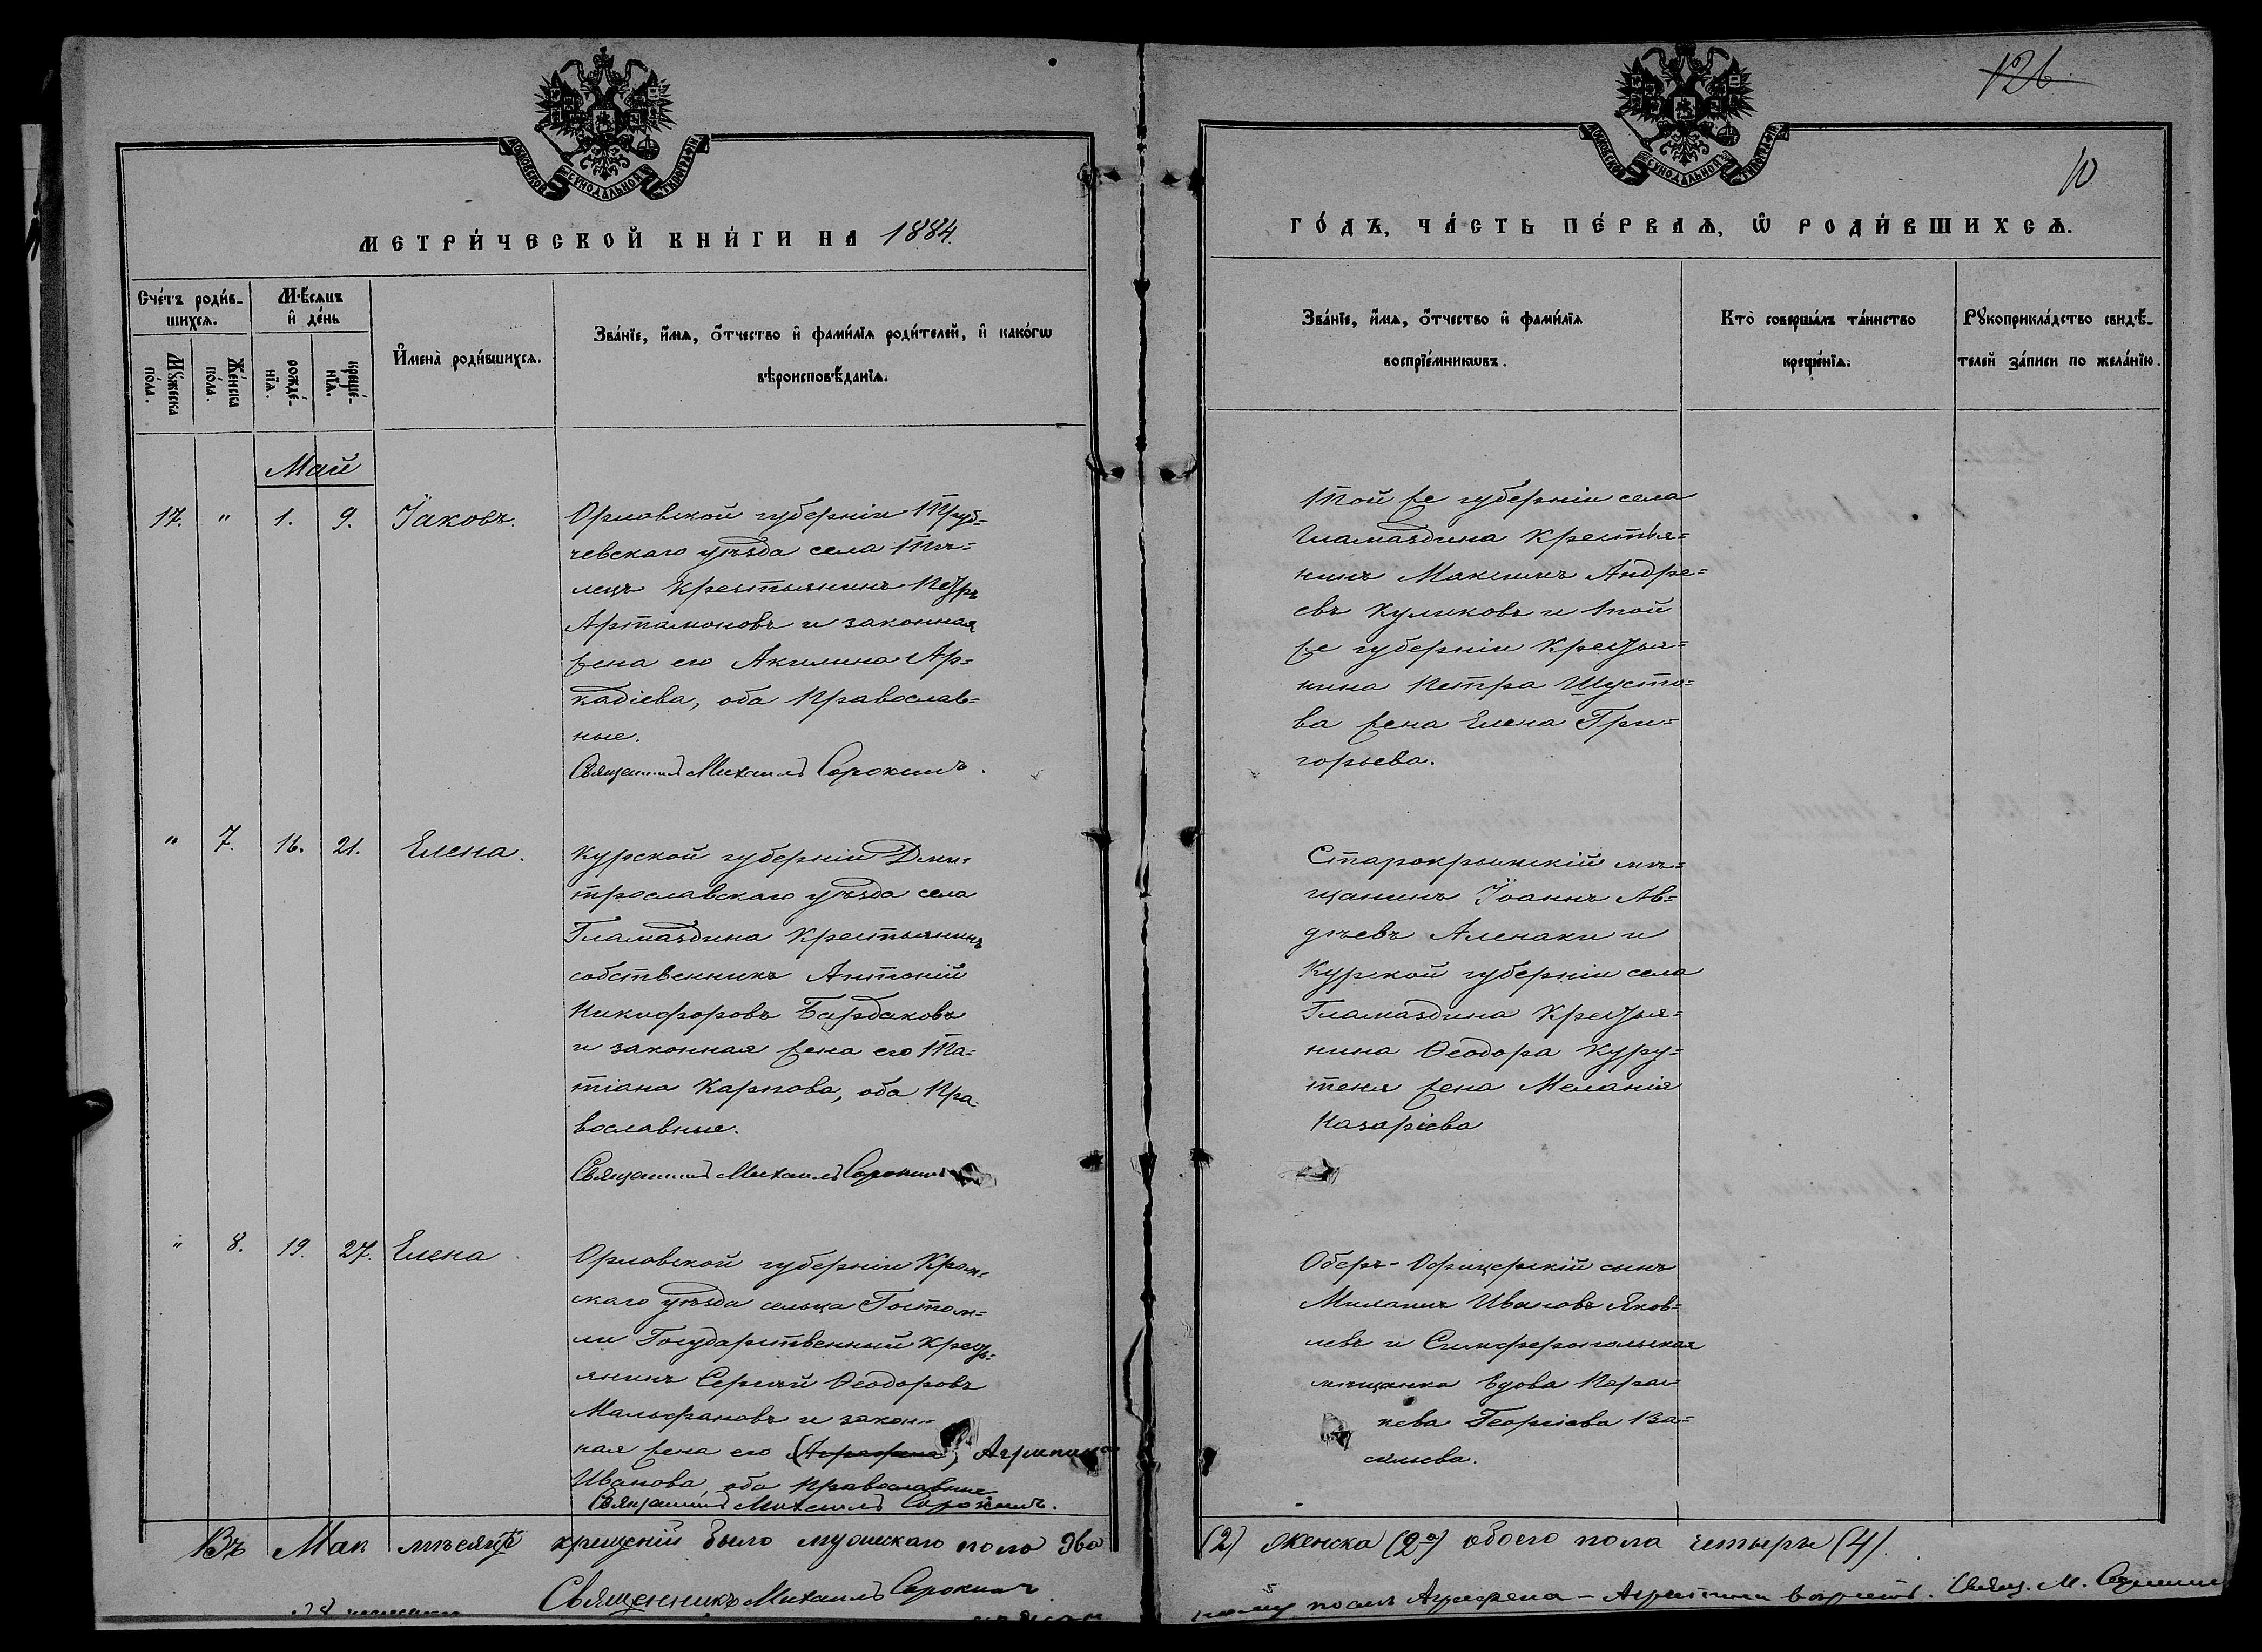 126
10
МОСКОВСКОЙ СѴНОДАЛЬНОЙ ТИПОГРАФІИ
МОСКОВСКОЙ СѴНОДАЛЬНОЙ ТИПОГРАФІИ
МЕТРИ́ЧЕСКОЙ КНИ́ГИ НА 1884.
ГО́ДЪ, ЧА́СТЬ ПЕ́РВАѦ, Ѿ РОДИ́ВШИХСѦ.
Сче́тъ роди́в-
шихсѧ.
Мꙋ́жеска по́ла.
Же́нска по́ла.
Мѣ́сѧцъ и҆ де́нь
рожде́-
нїѧ.
креще́-
нїѧ.
И҆мена̀ роди́вшихсѧ.
Зва́нїе, и҆́мѧ, ѻ҆́тчество и҆ фами́лїѧ роди́телей, и҆ како́гѡ
вѣроисповѣ́данїѧ.
Зва́нїе, и҆́мѧ, ѻ҆́тчество и҆ фами́лїѧ
воспрїе́мникѡвъ.
Кто̀ соверша́лъ та́инство
креще́нїѧ.
Рꙋкоприкла́дство свидѣ́-
телей за́писи по жела́нїю.
Май
17. " 1. 9. Іаковъ.
Орловской губерніи Труб=
чевскаго уѣзда села
крестьянинъ Петръ
Артамоновъ и законная
жена его Акилина Ар=
кадіева, оба православ=
ные.
Священникъ Михаилъ Сорокинъ.
Той же губерніи села
Гламаздина крестья=
нинъ Максимъ Андре=
евъ Куликовъ и той
же губерніи крестья=
нина Петра Шусто=
ва жена Елена Гри=
горьева.
" 7. 16. 21. Елена.
Курской губерніи Дми=
трославскаго уѣзда села
Гламаздина крестьянинъ
собственникъ Антоній
Никифоровъ Бардаковъ
и законная жена его Та=
тіана Карпова, оба пра=
вославные.
Священникъ Михаилъ Сорокинъ
Старокрымскій мѣ=
щанинъ Іоаннъ Ав=
дѣевъ Аленаки и
Курской губерніи села
Гламаздина крестья=
нина Ѳеодора Куру=
теня жена Меланія
Назаріева
" 8. 19. 27. Елена
Орловской губерніи Кром=
скаго уѣзда сельца Гостом=
ли Государственный кресть=
янинъ Сергѣй Ѳеодоровъ
Мальфановъ и закон=
ная жена его (Аграфена), Агрипина
Иванова, оба православные
Священникъ Михаилъ Сорокинъ.
Оберъ-Офицерскій сынъ
Ивановъ Яков=
левъ и Симферопольская
мѣщанка вдова
Георгіева Ва=
сильева.
Въ Маѣ мѣсяцѣ крещеній было мужскаго пола два
(2) женска (2а) обоего пола четыре (4).
Священникъ Михаилъ Сорокинъ
Аграфена - Агрипина Свящ. М. Сорокинъ